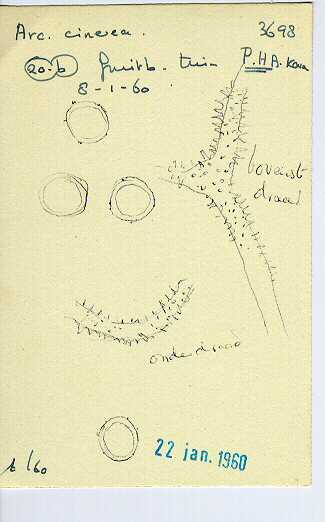 Arc. cinerea.
3698
20-b
P.H.A.
8-1-60
bovenst
draad
onderdraad
6/60
22 jan. 1960